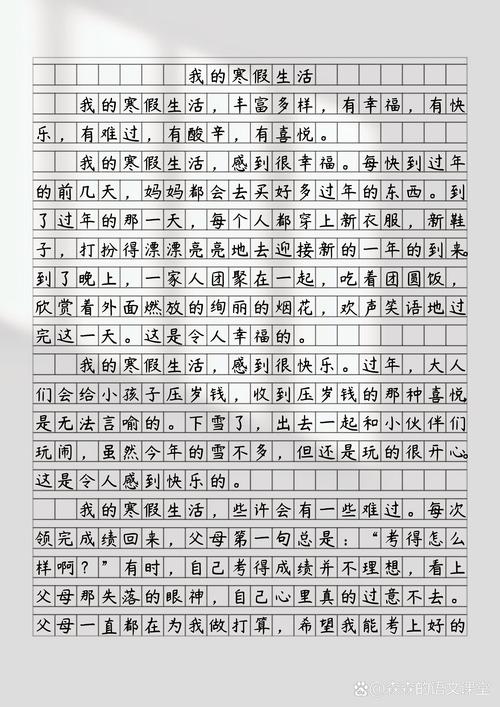 我的寒假生活
我的寒假生活，丰富多样，有幸福，有快
乐，有难过，有酸辛，有喜悦。
我的寒假生活，感到很幸福。每快到过年
的前几天，妈妈都会去买好多过年的东西。到
了过年的那一天，每个人都穿上新衣服，新鞋
子，打扮得漂漂亮亮地去迎接新的一年的到来。
到了晚上，一家人团聚在一起，吃着团圆饭，
欣赏着外面燃放的绚丽的烟花，欢声笑语地过
完这一天。这是令人幸福的。
我的寒假生活，感到很快乐。过年，大人
们会给小孩子压岁钱，收到压岁钱的那种喜悦
是无法言喻的。下雪了，出去一起和小伙伴们
玩闹，虽然今年的雪不多，但还是玩的很开心。
这是令人感到快乐的。
我的寒假生活，些许会有一些难过。每次
领完成绩回来，父母第一句总是：“考得怎么
样啊？”有时，自己考得成绩并不理想，看上
父母那失落的眼神，自己心里真的过意不去。
父母一直都在为我做打算，希望我能考上好的
@森森的语文课堂